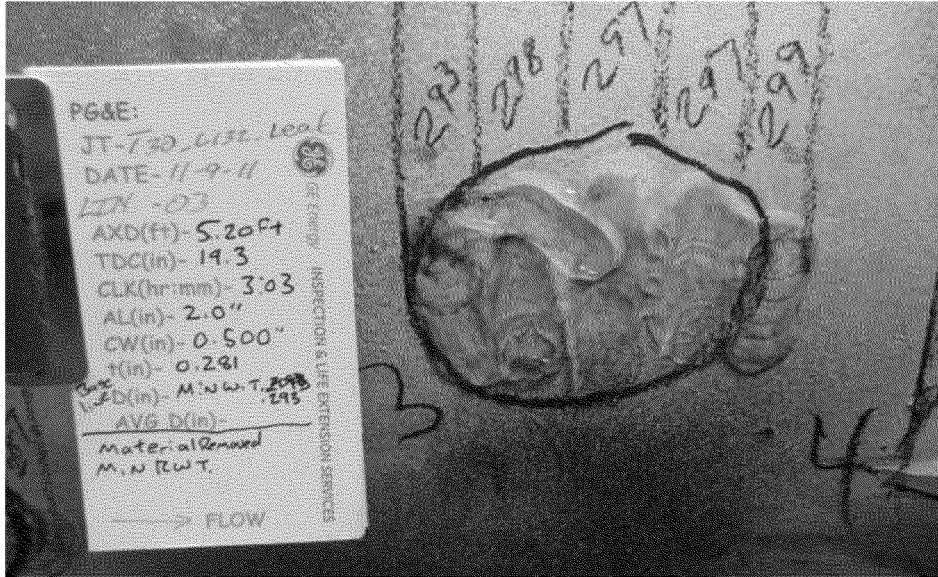 PG&E:
JT-T30_L132_Leak
DATE-11-9-11
LIN -03
AXD(ft)- 5.20ft
TDC(in)- 19.3
CLK(hr:mm)- 3:03
AL(in)- 2.0"
CW(in)- 0.500"
t(in)- 0.281
D(in)- M:N W.T. .293
AVG D(in)-
Material Removed
M:N RWT.
FLOW
GE Energy
INSPECTION & LIFE EXTENSION SERVICES
293
298
297
297
299
3
4